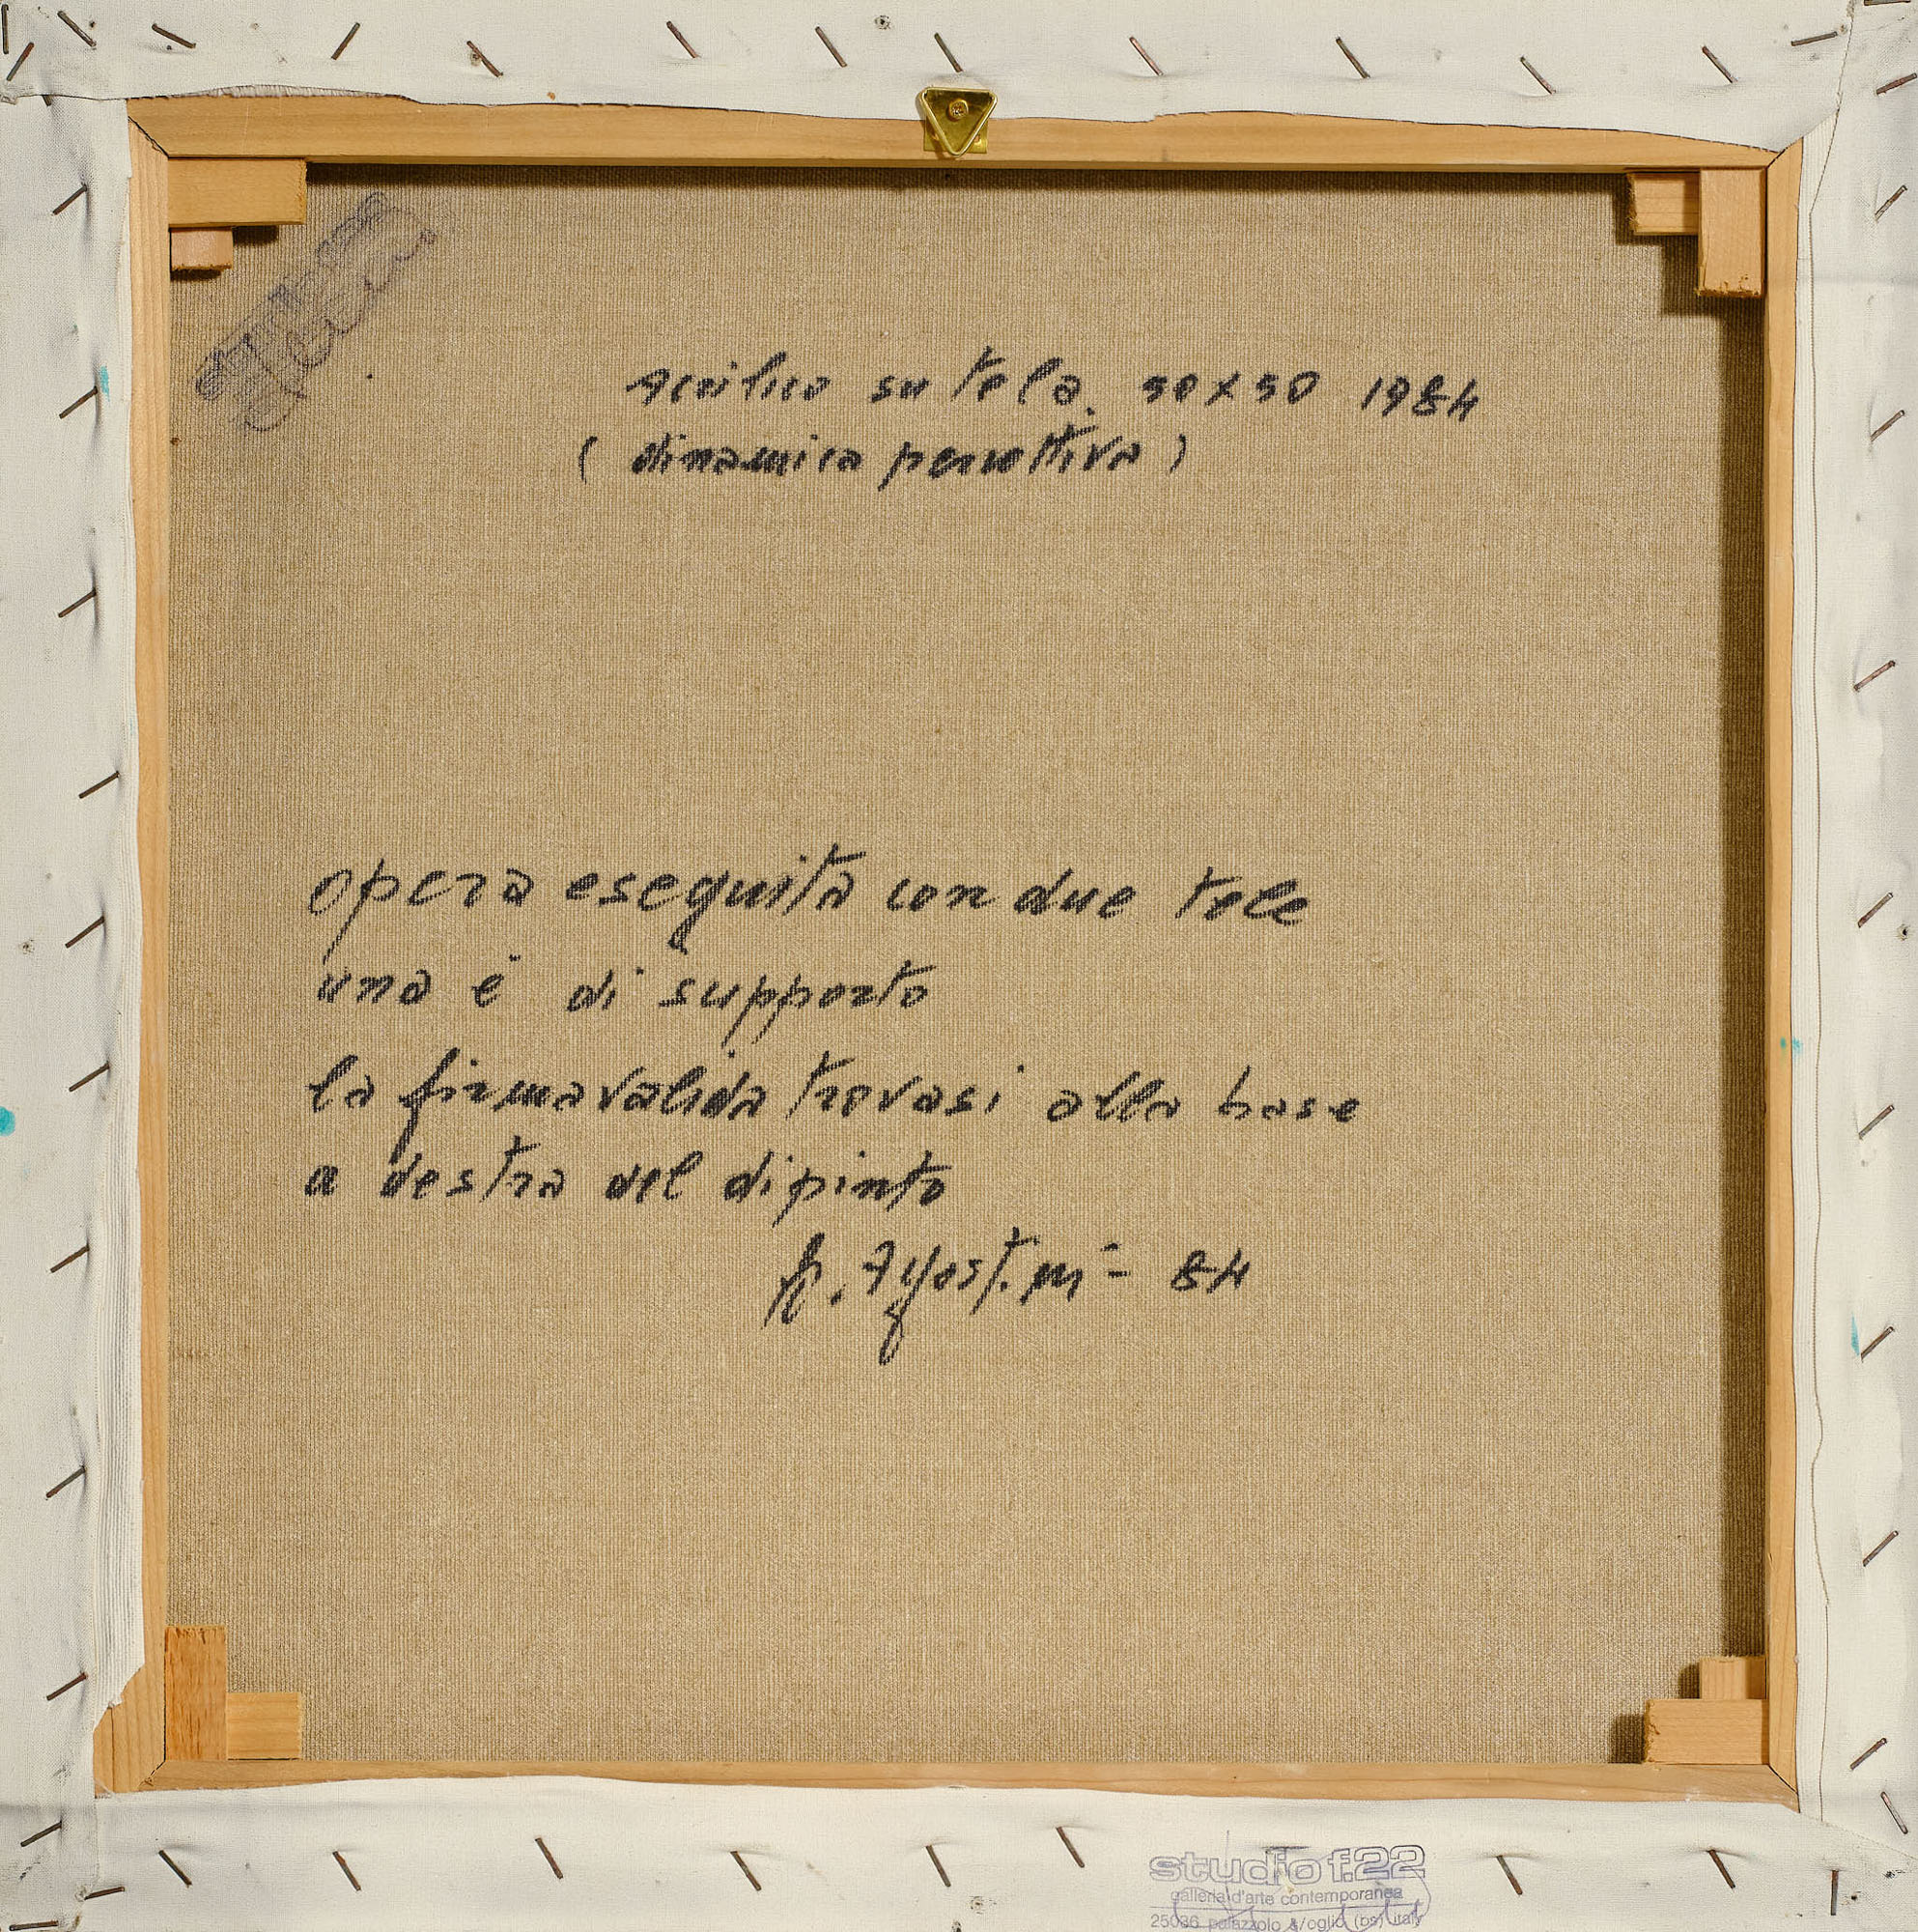 acrilico su tela. 50x50 1984
( dinamica percettiva )
opera eseguita con due tele
una è di supporto
la firma valida trovasi alla base
a destra del dipinto
Agostini - 84
studio f.22
galleria d'arte contemporanea
25036 palazzolo s/oglio (bs) italy